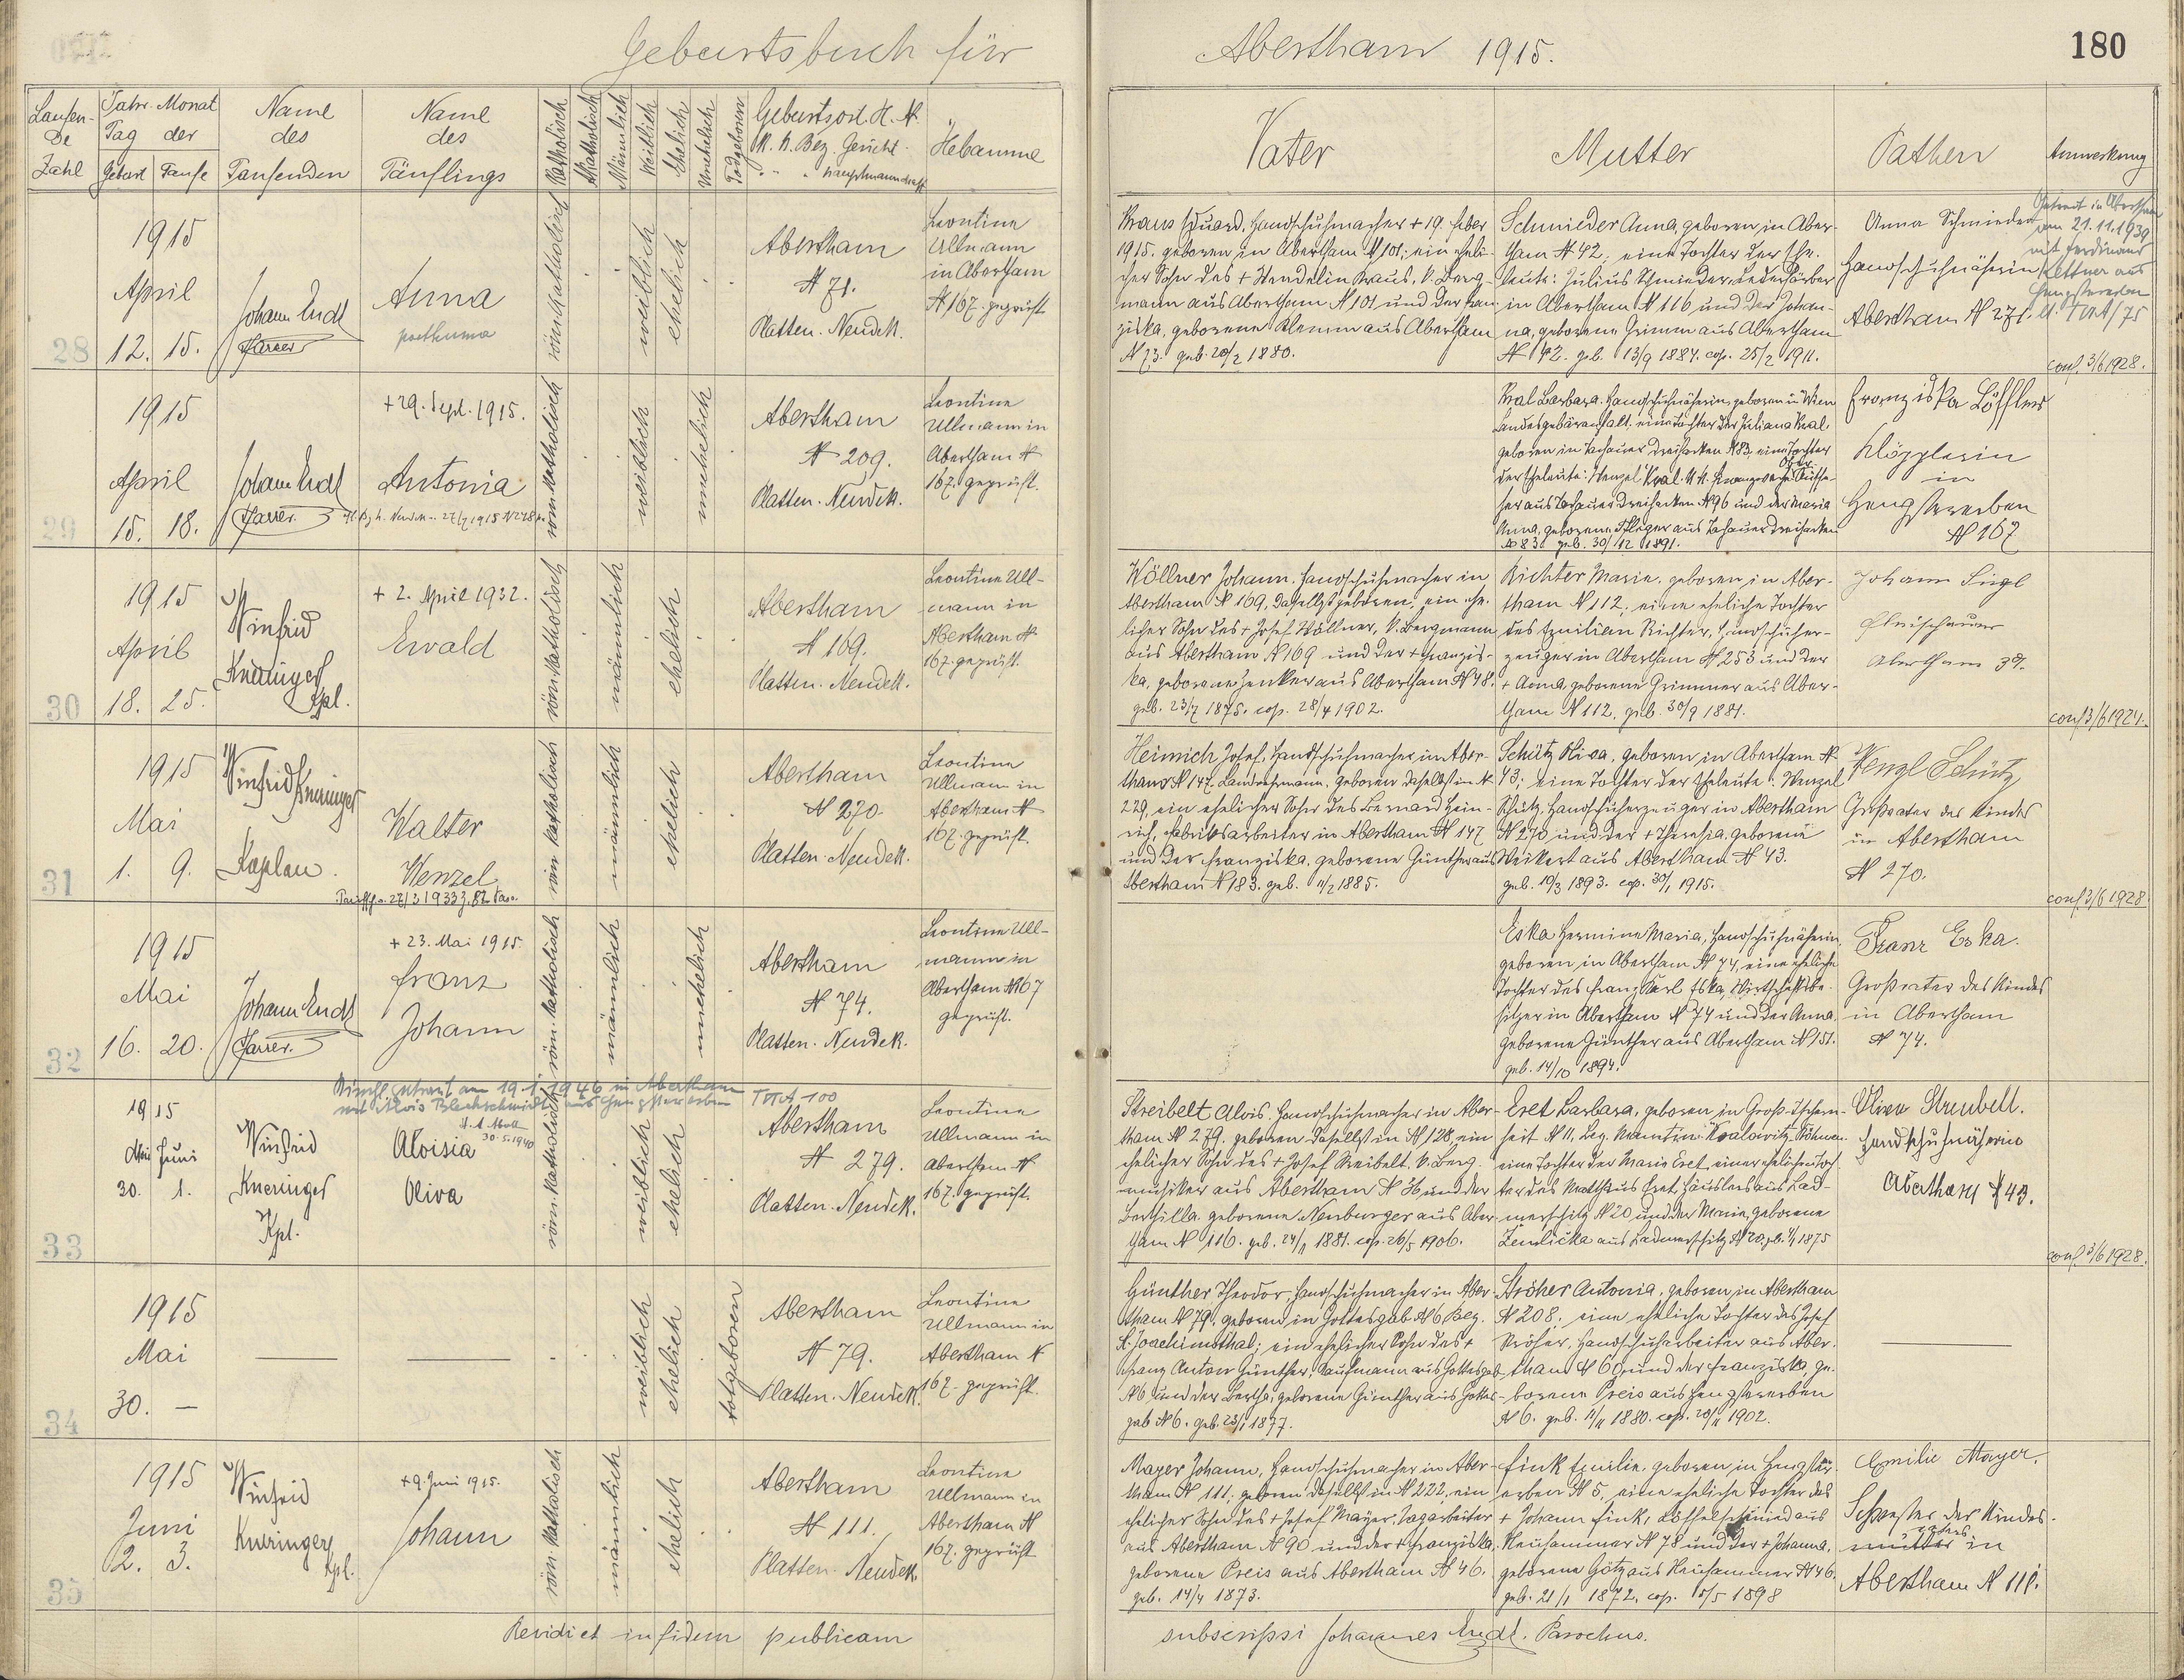 Geburtsbuch für
Abertham 1915.
180
Laufen-
de
Zahl
Jahr Monat
Tag der
Geburt Taufe
Name
des
Taufenden
Name
des
Täuflings
Katholisch
Akatholisch
Männlich
Weiblich
Ehelich
Unehelich
Todgeboren
Geburtsort H. N.
K. K. Bez. Gericht.
" " Hauptmannschaft
Hebamme
Vater
Mutter
Pathen
Anmerkung
28
1915
April
12. 15.
Johann Endt
Pfarrer
Anna
posthuma
röm. katholisch
weiblich
ehelich
Abertham
N 71.
Platten. Neudek.
Leontine
Ullmann
in Abertham
N 167. geprüft
Kraus Eduard, Handschuhmacher + 19. Feber
1915. geboren in Abertham N 101; ein eheli-
cher Sohn des + Wendelin Kraus, k. Berg-
mann aus Abertham N 101 und der Fran-
ziska, geborene Klemm aus Abertham
N 73. geb. 20/2 1880.
Schmieder Anna, geboren in Aber-
tham N 42; eine Tochter der Ehe-
leute: Julius Schmieder, Lederfärber
in Abertham N 116 und der Johan-
na, geborene Grimm aus Abertham
N 42. geb. 13/9 1884. cop. 25/2 1911.
Anna Schmieder
Handschuhnäherin
Abertham N 271.
Getraut in Abertham
am 21.11.1939
mit Ferdinand
Lettner aus
Hengstererben
conf. 3/6 1928.
29
1915
April
15. 18.
Johann Endt
Pfarrer.
+ 29. Sept. 1915.
Antonia
röm. katholisch
weiblich
unehelich
Abertham
N 209.
Platten. Neudek.
Leontine
Ullmann in
Abertham N
167. geprüft.
Kral Barbara. Handschuhnäherin, geboren in Wien
Landesgebäranstalt. eine Tochter der Juliana Kral.
geboren in Tachauer Dreihacken N 83, eine Tochter
der Eheleute: Wenzel Kral. k. k. Finanzwache Ober Aufse-
her aus Tachauer Dreihacken N 96 und der Maria
Anna, geborene Pfleger aus Tachauer Dreihacken
N 83. geb. 30/12 1891.
Franziska Löffler
Klöpplerin
in
Hengstererben
N 167
30
1915
April
18. 25.
Winfrid
Kneringer
Kpl.
+ 2. April 1932.
Ewald
röm. katholisch
männlich
ehelich
Abertham
N 169.
Platten. Neudek.
Leontine Ull-
mann in
Abertham N
167. geprüft.
Wöllner Johann. Handschuhmacher in
Abertham N 169, daselbst geboren; ein ehe-
licher Sohn des + Josef Wöllner, k. Bergmann
aus Abertham N 169 und der + Franzis-
ka, geborene Zenker aus Abertham N 48.
geb. 23/7 1875. cop. 28/4 1902.
Richter Marie. geboren in Aber-
tham N 112; eine eheliche Tochter
des Emilian Richter, Handschuher-
zeuger in Abertham N 253 und der
+ Anna, geborene Grimmer aus Aber-
tham N 112. geb. 30/9 1881.
Johann Siegl
Fleischhauer
Abertham
conf. 3/6 1927.
31
1915
Mai
1. 9.
Winfrid Kneringer
Kaplan.
Walter
Wenzel
röm. katholisch
männlich
ehelich
Abertham
N 270
Platten. Neudek.
Leontine
Ullmann in
Abertham N
167. geprüft.
Heinrich Josef, Handschuhmacher in Aber-
tham N 147. Landsturmmann. geboren daselbst in N
229, ein ehelicher Sohn des Bernard Hein-
rich, Fabriksarbeiter in Abertham N 147
und der Franziska, geborene Günther aus
Abertham N 183. geb. 11/2 1885.
Schütz Oliva, geboren in Abertham N
43; eine Tochter der Eheleute: Wenzel
Schütz, Handschuherzeuger in Abertham
N 270 und der + Theresia, geborene
Weikert aus Abertham N 43.
geb. 10/3 1893. cop. 30/1 1915.
Wenzl Schütz
Großvater des Kindes
in Abertham
N 270.
conf. 3/6 1928
32
1915
Mai
16. 20.
Johann Endt
Pfarrer.
+ 23. Mai 1915.
Franz
Johann
röm. katholisch
männlich
unehelich
Abertham
N 74.
Platten. Neudek.
Leontine Ull-
mann in
Abertham N 167
geprüft.
Eska Hermine Maria, Handschuhnäherin,
geboren in Abertham N 74, eine eheliche
Tochter des Franz Karl Eska, Wirtschaftsbe-
sitzer in Abertham N 74 und der Anna,
geborene Günther aus Abertham N 151.
geb. 14/10 1894.
Franz Eska.
Großvater des Kindes
in Abertham
N 74.
33
Kirchl. getraut am 19.1.1946 in Abertham
mit Alois Blechschmidt aus Hengstererben
1915
Mai Juni
30. 1.
Winfrid
Kneringer
Kpl.
Aloisia
Oliva
röm. katholisch
weiblich
ehelich
Abertham
N 279.
Platten. Neudek.
Leontine
Ullmann in
Abertham N
167. geprüft.
Streibelt Alois. Handschuhmacher in Aber-
tham N 279. geboren daselbst in N 128, ein
ehelicher Sohn des + Josef Streibelt. k. Berg-
musiker aus Abertham N 36 und der
Berthilla, geborene Neuburger aus Aber-
tham N 116. geb. 24/1 1881. cop. 26/5 1906.
Eret Barbara, geboren in Groß-Tschern-
eine Tochter der Marie Eret, einer ehelichen Toch-
ter des Matthäus Eret, Häuslers aus Lad-
merschitz N 20 und der Maria, geborene
Zemlička aus Ladmerschitz N 20.
Oliva Streubelt.
Handschuhnäherin
Abertham N 43.
conf. 3/6 1928.
34
1915
Mai
30. —
weiblich
ehelich
totgeboren
Abertham
N 79.
Platten. Neudek.
Leontine
Ullmann in
Abertham N
167. geprüft.
Günther Theodor, Handschuhmacher in Aber-
tham N 79, geboren in Gottesgab N 6 Bez.
St. Joachimsthal; ein ehelicher Sohn des +
Franz Anton Günther, Kaufmann aus Gottesgab
N 6 und der Bertha, geborene Günther aus Gottes-
gab N 6. geb. 23/1 1877.
Ströher Antonia, geboren in Abertham
N 208; eine eheliche Tochter des Josef
Ströher, Handschuharbeiter aus Aber-
tham N 60 und der Franziska ge-
borene Preis aus Hengstererben
N 6. geb. 11/11 1880. cop. 20/11 1902.
35
1915
Juni
2. 3.
Winfrid
Kneringer
Kpl.
+ 9. Juni 1915.
Johann
röm. katholisch
männlich
ehelich
Abertham
N 111.
Platten. Neudek.
Leontine
Ullmann in
Abertham N
167. geprüft
Mayer Johann, Handschuhmacher in Aber-
tham N 111; geboren daselbst in N 222, ein
ehelicher Sohn des + Josef Mayer, Tagarbeiter
aus Abertham N 90 und der + Franziska,
geborene Preis aus Abertham N 46.
geb. 14/4 1873.
Fink Emilie. geboren in Hengster-
erben N 5, eine eheliche Tochter des
+ Johann Fink, Löffelschmied aus
Neuhammer N 78 und der + Johanna,
geborene Götz aus Neuhammer N 46.
geb. 21/1 1872. cop. 15/5 1898
Emilie Mayer.
Schwester der Kindes-
mutter in
Abertham N 111.
Revidi et in fidem publicam
subscripsi Johannes Endt. Parochus.